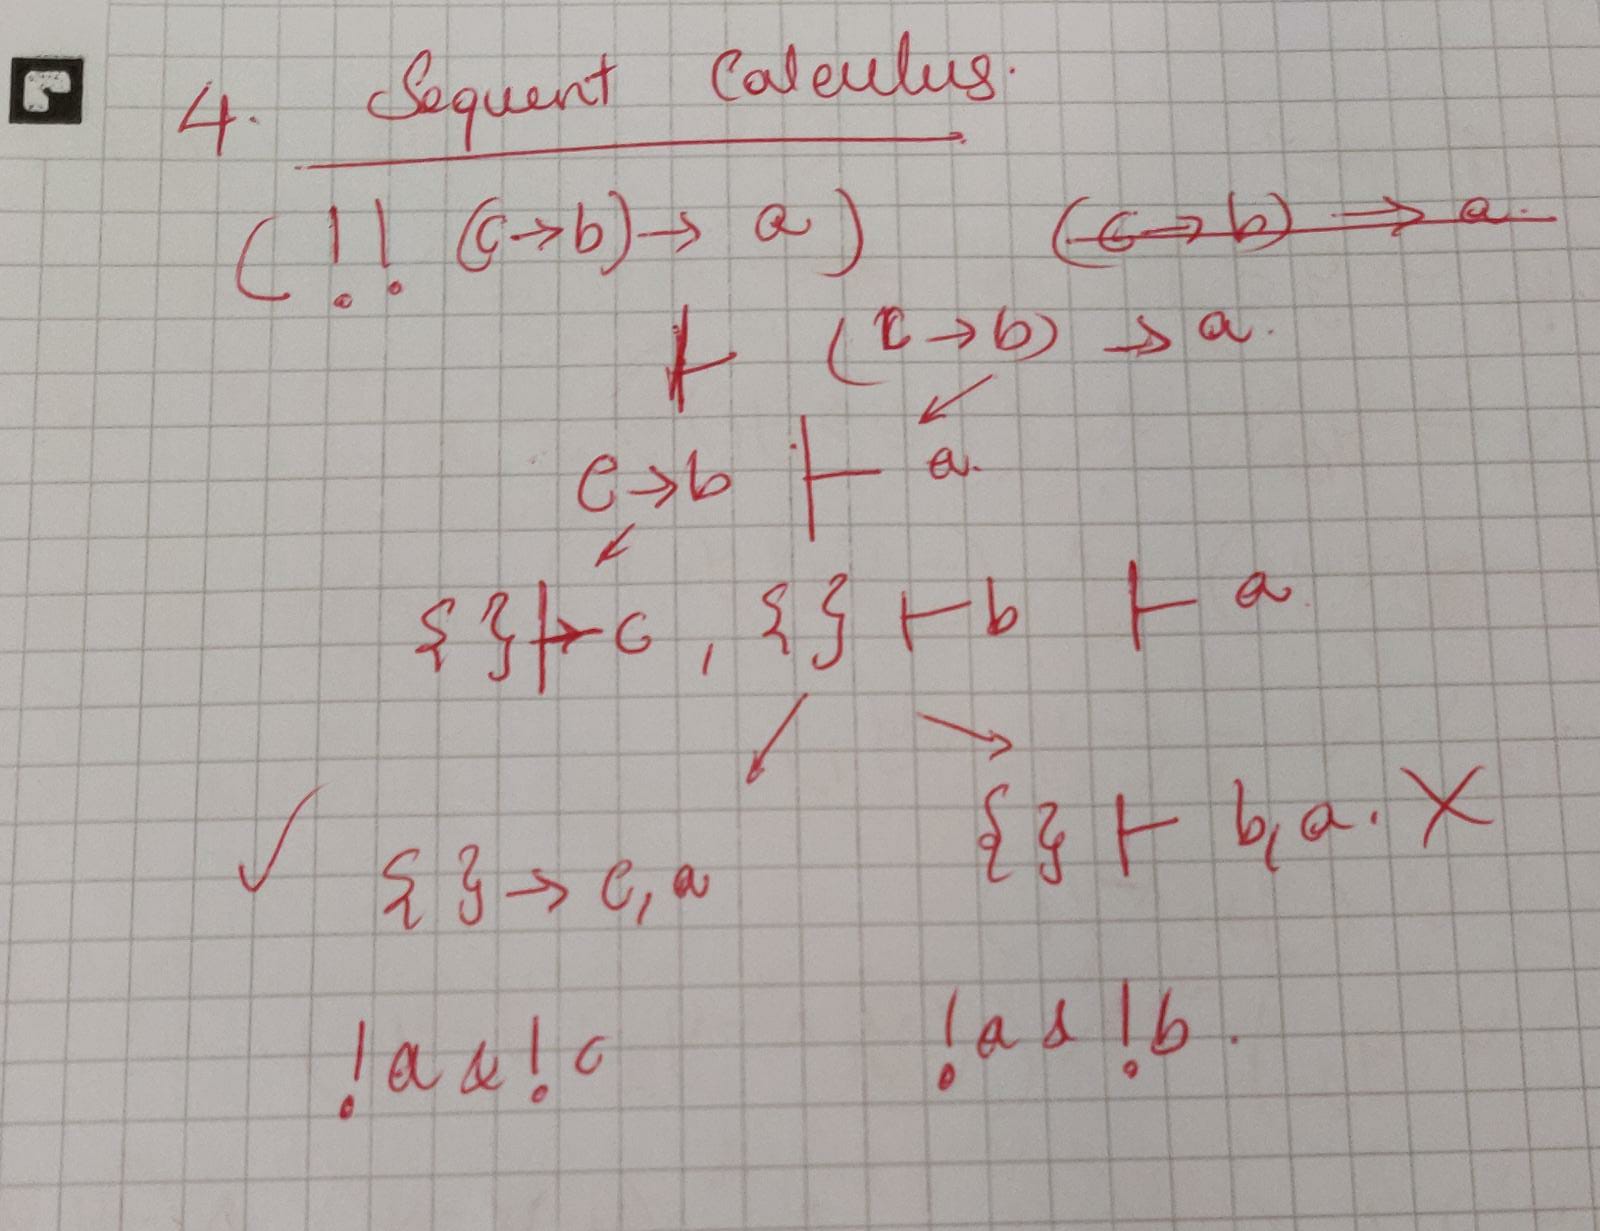 4. Sequent Calculus.
(!! (c→b)→ a) (c→b) → a.
⊢ (c→b) → a.
c→b ⊢ a.
{ } ⊢ c , { } ⊢ b ⊢ a
{ } ⊢ b, a. X
✓ { } → c, a
!a & !c !a & !b.